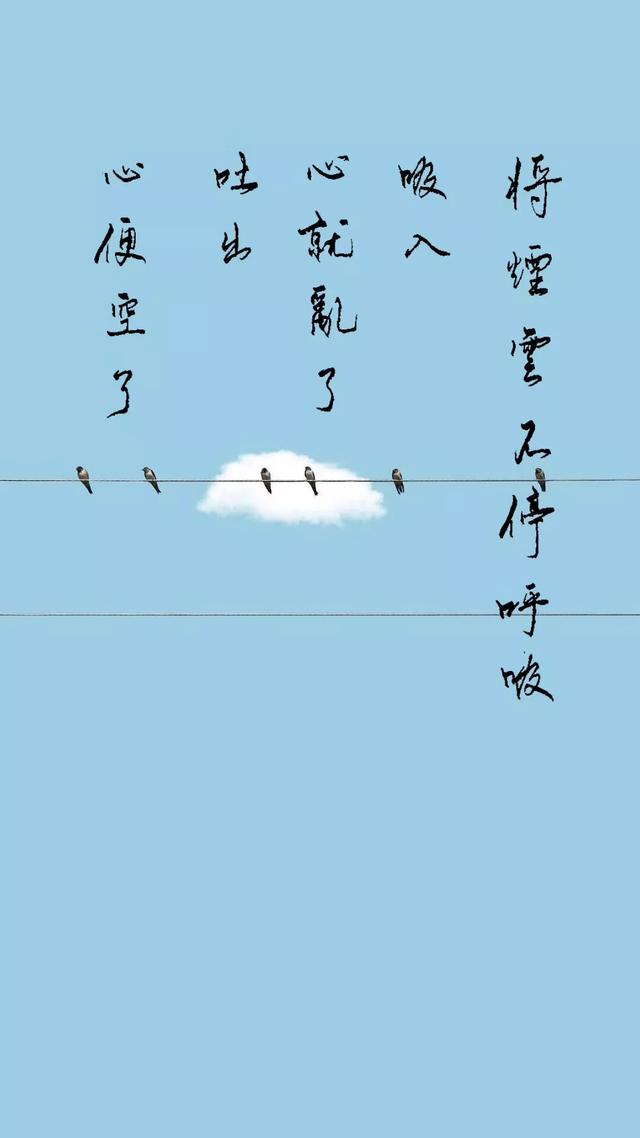 將煙雲不停呼吸
吸入
心就亂了
吐出
心便空了